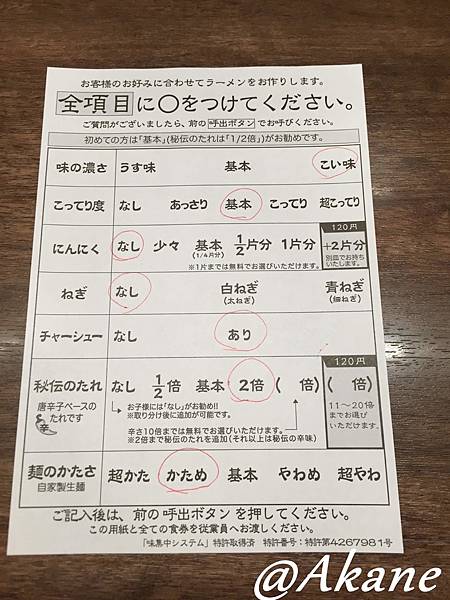 お客様のお好みに合わせてラーメンをお作りします。
全項目に〇をつけてください。
ご質問がございましたら、前の呼出ボタンでお呼びください。
初めての方は「基本」(秘伝のたれは「1/2倍」)がお勧めです。
味の濃さ うす味 基本 こい味
こってり度 なし あっさり 基本 こってり 超こってり
120円
にんにく なし 少々 基本 1/2片分 1片分 +2片分
(1/4片分)
※1片までは無料でお選びいただけます。
別皿でお持ち
いたします。
ねぎ なし 白ねぎ 青ねぎ
(太ねぎ) (細ねぎ)
チャーシュー なし あり
120円
秘伝のたれ なし 1/2倍 基本 2倍 ( 倍) ( 倍)
唐辛子ベースの
たれです
辛
お子様には「なし」がお勧め!!
※取り分け後に追加が可能です。
辛さ10倍までは無料でお選びいただけます。
※2倍まで秘伝のたれを追加(それ以上は秘伝の辛味)
11〜20倍
までお選び
いただけます。
麺のかたさ 超かた かため 基本 やわめ 超やわ
自家製生麺
ご記入後は、前の呼出ボタンを押してください。
この用紙と全ての食券を従業員へお渡しください。
「味集中システム」特許取得済 特許番号:特許第4267981号
@Akane